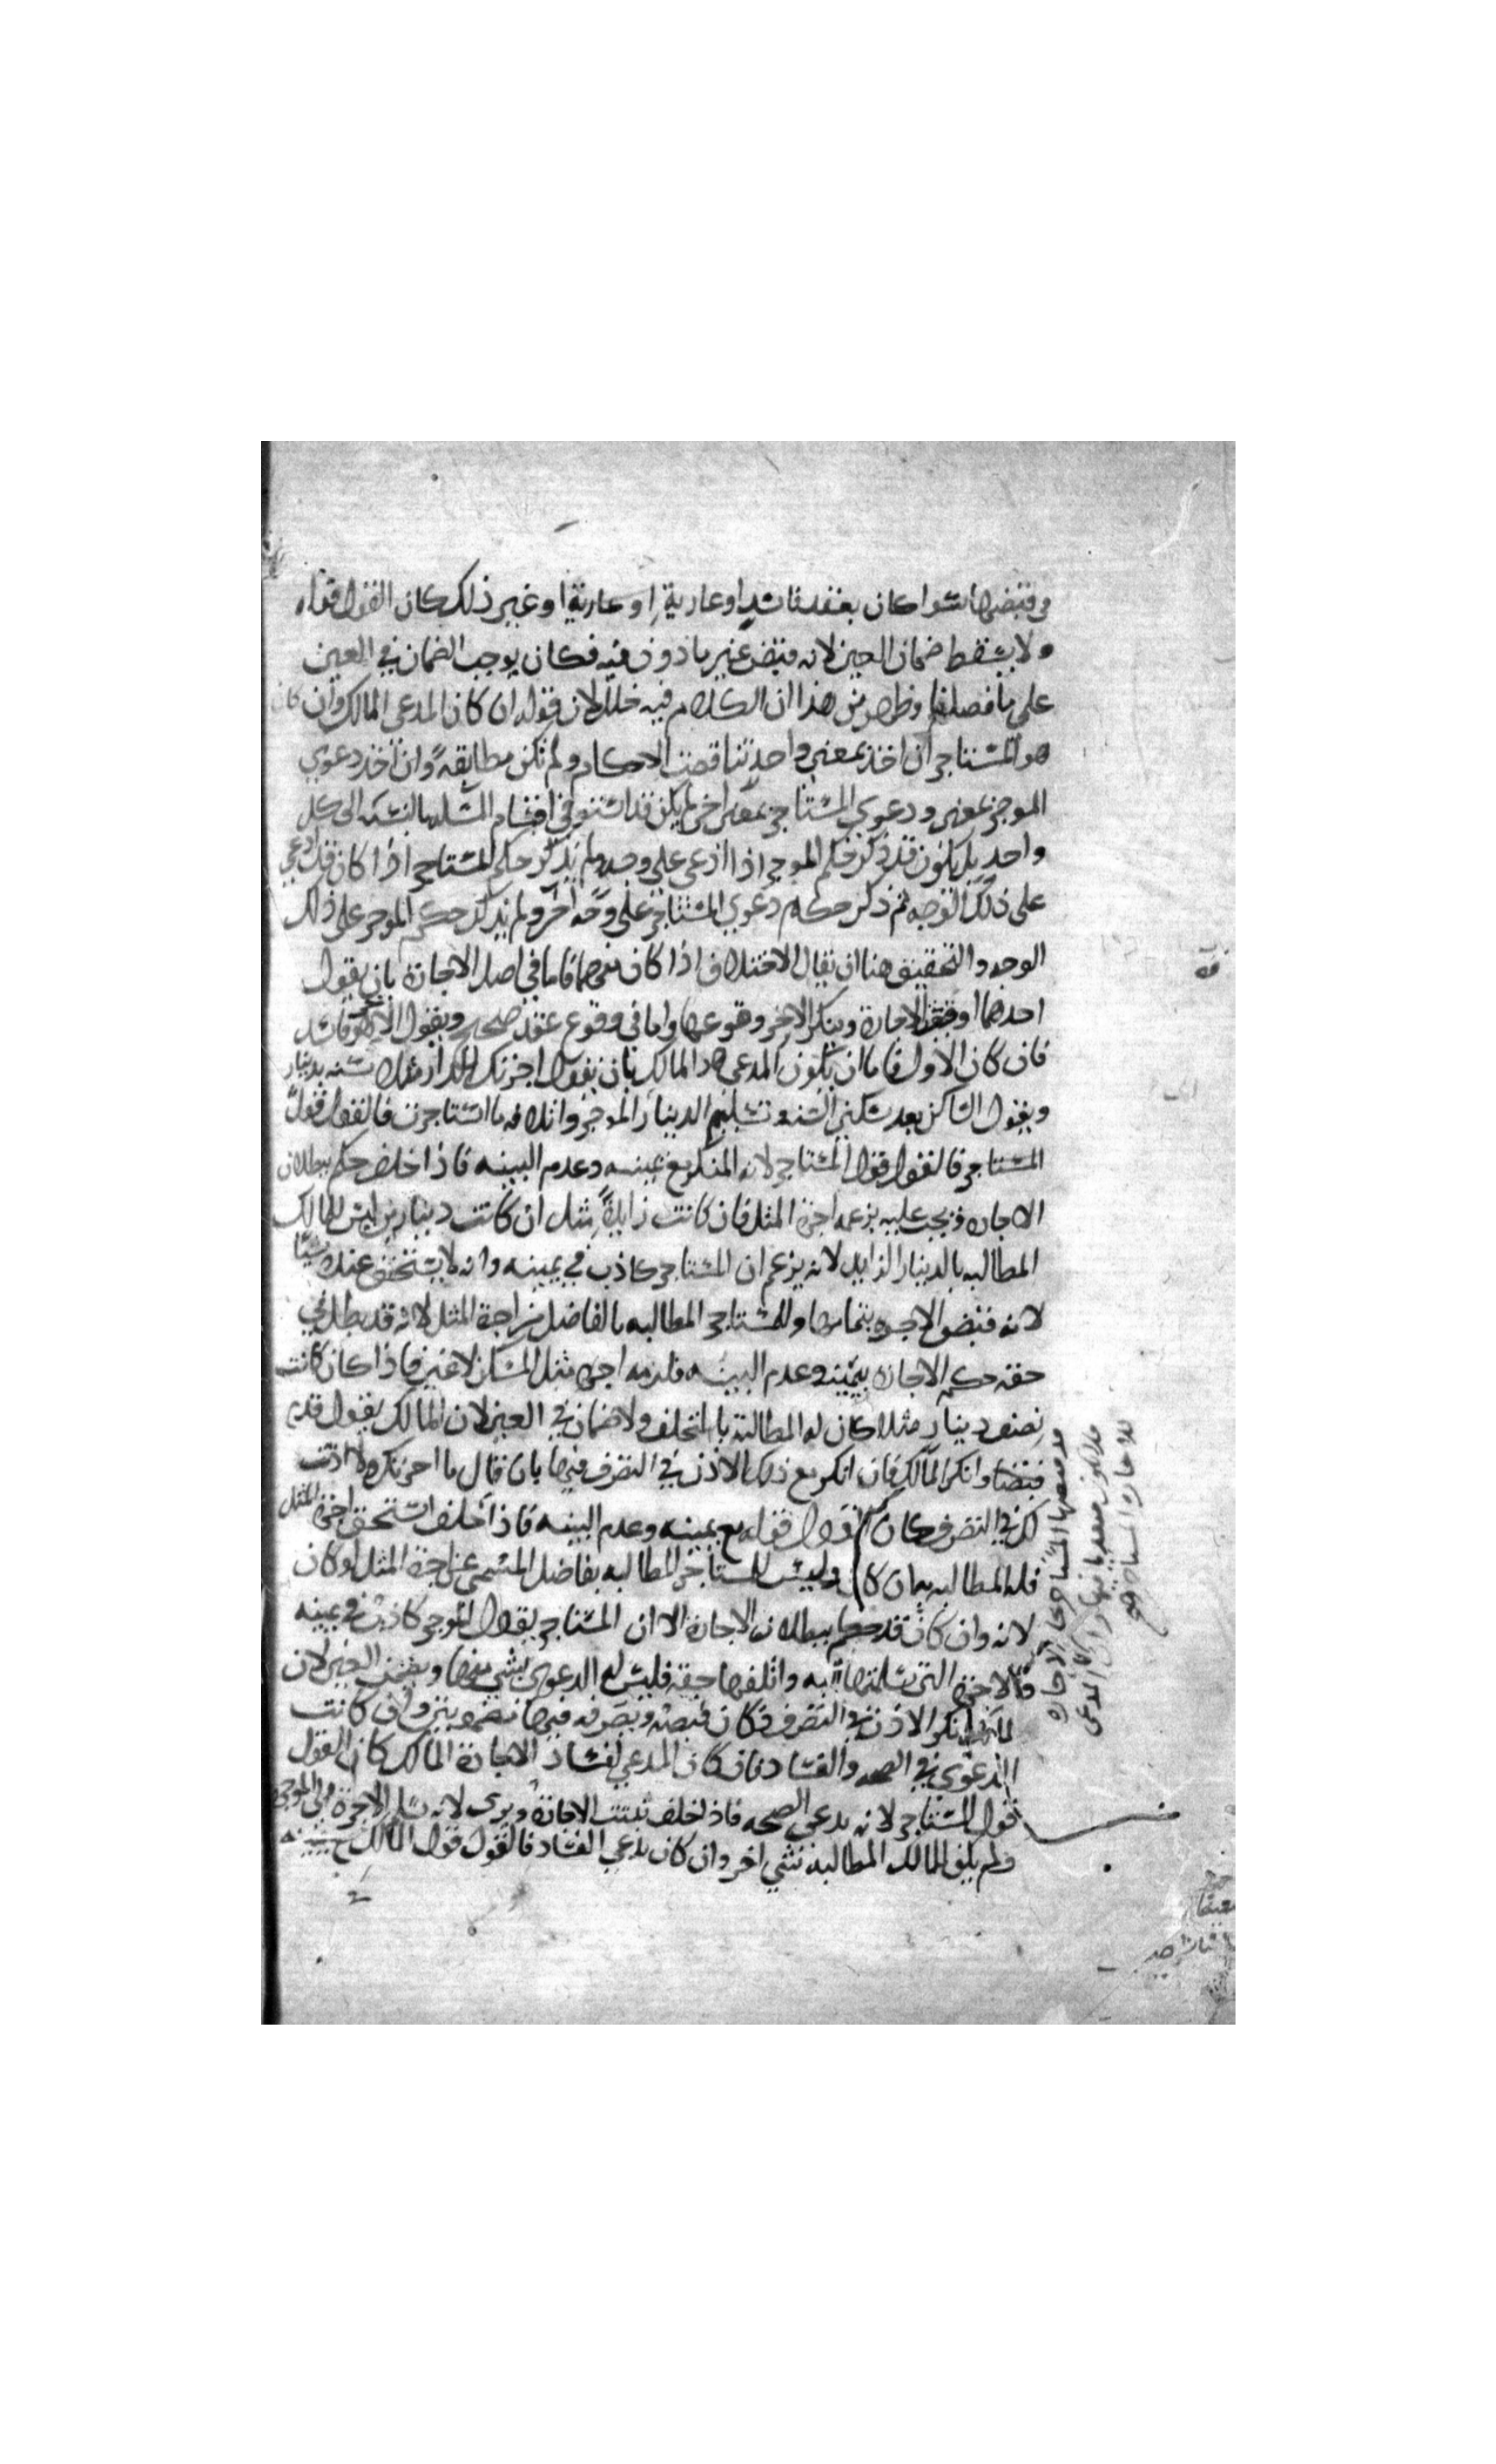 في قبضها سوا كان بعقد فاسد او عارية او عارية او غير ذلك كان القول قوله
ولا يسقط ضمان العين لانه قبض غير ماذون فيه فكان يوجب الضمان في العين
على ما فصلناه وظهر من هذا ان الكلام فيه خلل لان قوله ان كان المدعي المالك وان كان
هو المستاجر ان اخذ بمعنى واحد تناقضت الاحكام ولم تكن مطابقة وان اخذ دعوي
الموجر بمعنى ودعوي المستاجر بمعنى اخر لم يكن قد استوفى اقسام المسله بالنسبة الى كل
واحد بل يكون قد ذكر حكم الموجر اذا ادعى على وجه ولم يذكر حكم المستاجر اذا كان قد ادعى
على ذلك الوجه ثم ذكر حكم دعوي المستاجر على وجه آخر ولم يذكر حكم الموجر على ذلك
الوجه والتحقيق هنا ان يقال الاختلاف اذا كان بينهما فاما في اصل الاجارة بان يقول
احدهما وقعت الاجارة وينكر الاخر وقوعها واما في وقوع عقد صحيح ويقول الاخر فاسد
فان كان الاول فاما ان يكون المدعي هو المالك بان يقول اجرتك الدار مثلا سنه بدينار
ويقول الساكن بعد سكنى السنه وتسليم الدينار الموجر واتلافه ما استاجرت فالقول قول
المستاجر فالقول قول المستاجر لانه المنكر مع يمينه وعدم البينه فاذا حلف حكم ببطلان
الاجاره ويجب عليه بزعمه اجرة المثل فان كانت زايدة مثل ان كانت دينارين ليس للمالك
المطالبه بالدينار الزايد لانه يزعم ان المستاجر كاذب في يمينه وانه لا يستحق عنده شيا
لانه قبض الاجره بتمامها وللمستاجر المطالبه بالفاضل من اجرة المثل لانه قد بطل في
حقه حكم الاجاره بيمينه وعدم البينه فلزمه اجرة مثل المسكن لا غير فاذا كان كانت
نصف دينار مثلا كان له المطالبة بالمتخلف ولا ضمان في العين لان المالك يقول قد
قبضتا وانكر المالك فان انكر مع ذلك الاذن في التصرف فيها بان قال ما اجرتك ولا اذنت
لك في التصرف كان القول قوله مع يمينه وعدم البينه فاذا حلف استحق اجرة المثل
فله المطالبه بها ان كان وليس للمستاجر المطالبه بفاضل المسمى عن اجرة المثل لو كان
لانه وان كان قد حكم ببطلان الاجارة الا ان المستاجر يقول الموجر كاذب في يمينه
والاجرة التي تسلمها به واتلفها حقه فليس له الدعوي بشي منها ويضمن العين لان
المالك انكر الاذن في التصرف فكان قبضه وتصرفه فيها وان كانت
الدعوى في الصحه والفساد فان كان المدعي لفساد الاجارة المالك كان القول
قول المستاجر لانه يدعي الصحه فاذا حلف ثبتت الاجارة وبرى لانه سلم الاجرة الى الموجر
ولم يكن للمالك المطالبة بشي اخر وان كان يدعي الفساد فالقول قول المالك مع يمينه